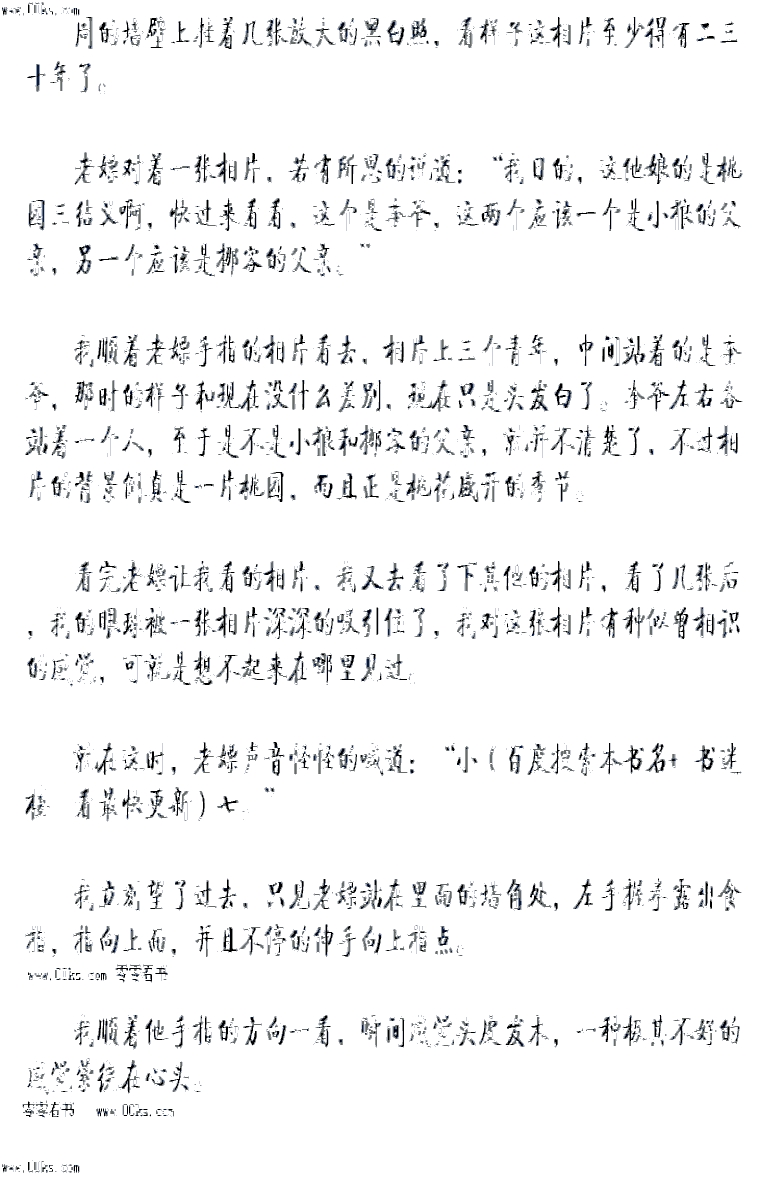 www.00ks.com
周的墙壁上挂着几张放大的黑白照，看样子这相片至少得有二三
十年了。
老嫖对着一张相片，若有所思的说道：“我日的，这他娘的是桃
园三结义啊，快过来看看，这个是李爷，这两个应该一个是小狼的父
亲，另一个应该是挪客的父亲。”
我顺着老嫖手指的相片看去，相片上三个青年，中间站着的是李
爷，那时的样子和现在没什么差别，现在只是头发白了。李爷左右各
站着一个人，至于是不是小狼和挪客的父亲，就并不清楚了，不过相
片的背景倒真是一片桃园，而且正是桃花盛开的季节。
看完老嫖让我看的相片，我又去看了下其他的相片，看了几张后
，我的眼球被一张相片深深的吸引住了，我对这张相片有种似曾相识
的感觉，可就是想不起来在哪里见过。
就在这时，老嫖声音怪怪的喊道：“小（百度搜索本书名+ 书迷
楼 看最快更新）七。”
我立刻望了过去，只见老嫖站在里面的墙角处，左手握拳露出食
指，指向上面，并且不停的伸手向上指点。
www.00ks.com 零零看书
我顺着他手指的方向一看，瞬间感觉头皮发木，一种极其不好的
感觉萦绕在心头。
零零看书 www.00ks.com
www.00ks.com